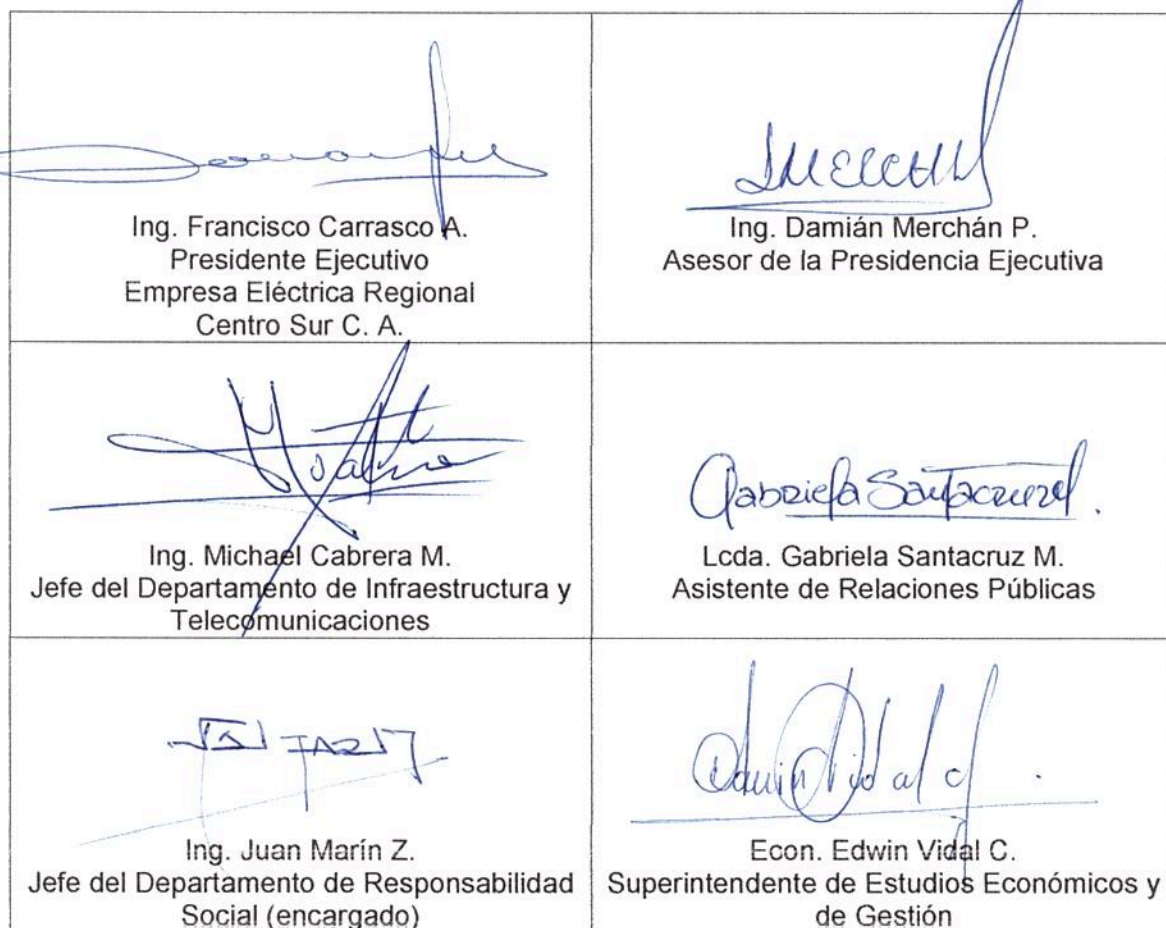 Ing. Francisco Carrasco A.
Presidente Ejecutivo
Empresa Eléctrica Regional
Centro Sur C. A.
Ing. Damián Merchán P.
Asesor de la Presidencia Ejecutiva
Ing. Michael Cabrera M.
Jefe del Departamento de Infraestructura y
Telecomunicaciones
Gabriela Santacruz
Lcda. Gabriela Santacruz M.
Asistente de Relaciones Públicas
Ing. Juan Marín Z.
Jefe del Departamento de Responsabilidad
Social (encargado)
Edwin Vidal
Econ. Edwin Vidal C.
Superintendente de Estudios Económicos y
de Gestión